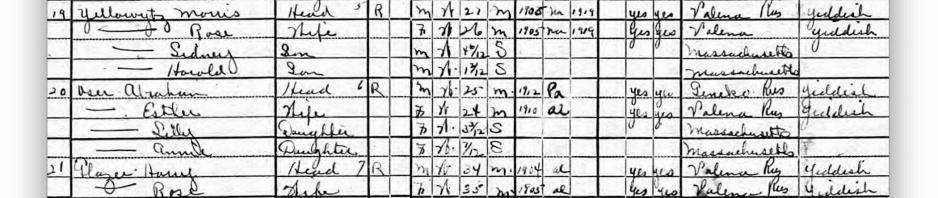 19 Yellowitz Morris Head 5 R m W 27 m 1905 na 1919 yes yes Valena Rus Yiddish
— Rose Wife F W 26 m 1905 na 1919 yes yes Valena Yiddish
— Sidney Son m W 4 /12 S Massachusetts
— Harold Son m W 1 /12 S Massachusetts
20 Abraham Head 6 R m W 25 m 1912 Pa yes yes Rus Yiddish
— Esther Wife F W 24 m 1910 al yes yes Valena Rus Yiddish
— Lilly Daughter F W 3 /12 S Massachusetts
— Annie Daughter F W /12 S Massachusetts
21 Glazer Harry Head 7 R m W 34 m 1904 al yes yes Valena Rus Yiddish
— Rose Wife F W 35 m 1905 al yes yes Valena Rus Yiddish